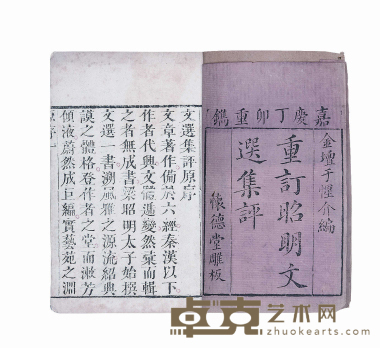 嘉慶丁卯重鐫
金壇于惺介編
重訂昭明文
選集評
懷德堂雕板
文選集評原序
文章著作備於六經秦漢以下
作者代興文體遞變然裒而輯
之者無成書梁昭明太子始撰
文選一書溯風雅之源流紹典
謨之體格登作者之堂而漱芳
傾液蔚然成巨編實藝苑之淵
卓克艺术网
zhuokearts.com